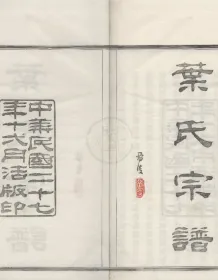 葉氏宗譜
中華民國二十七
年十月活版印